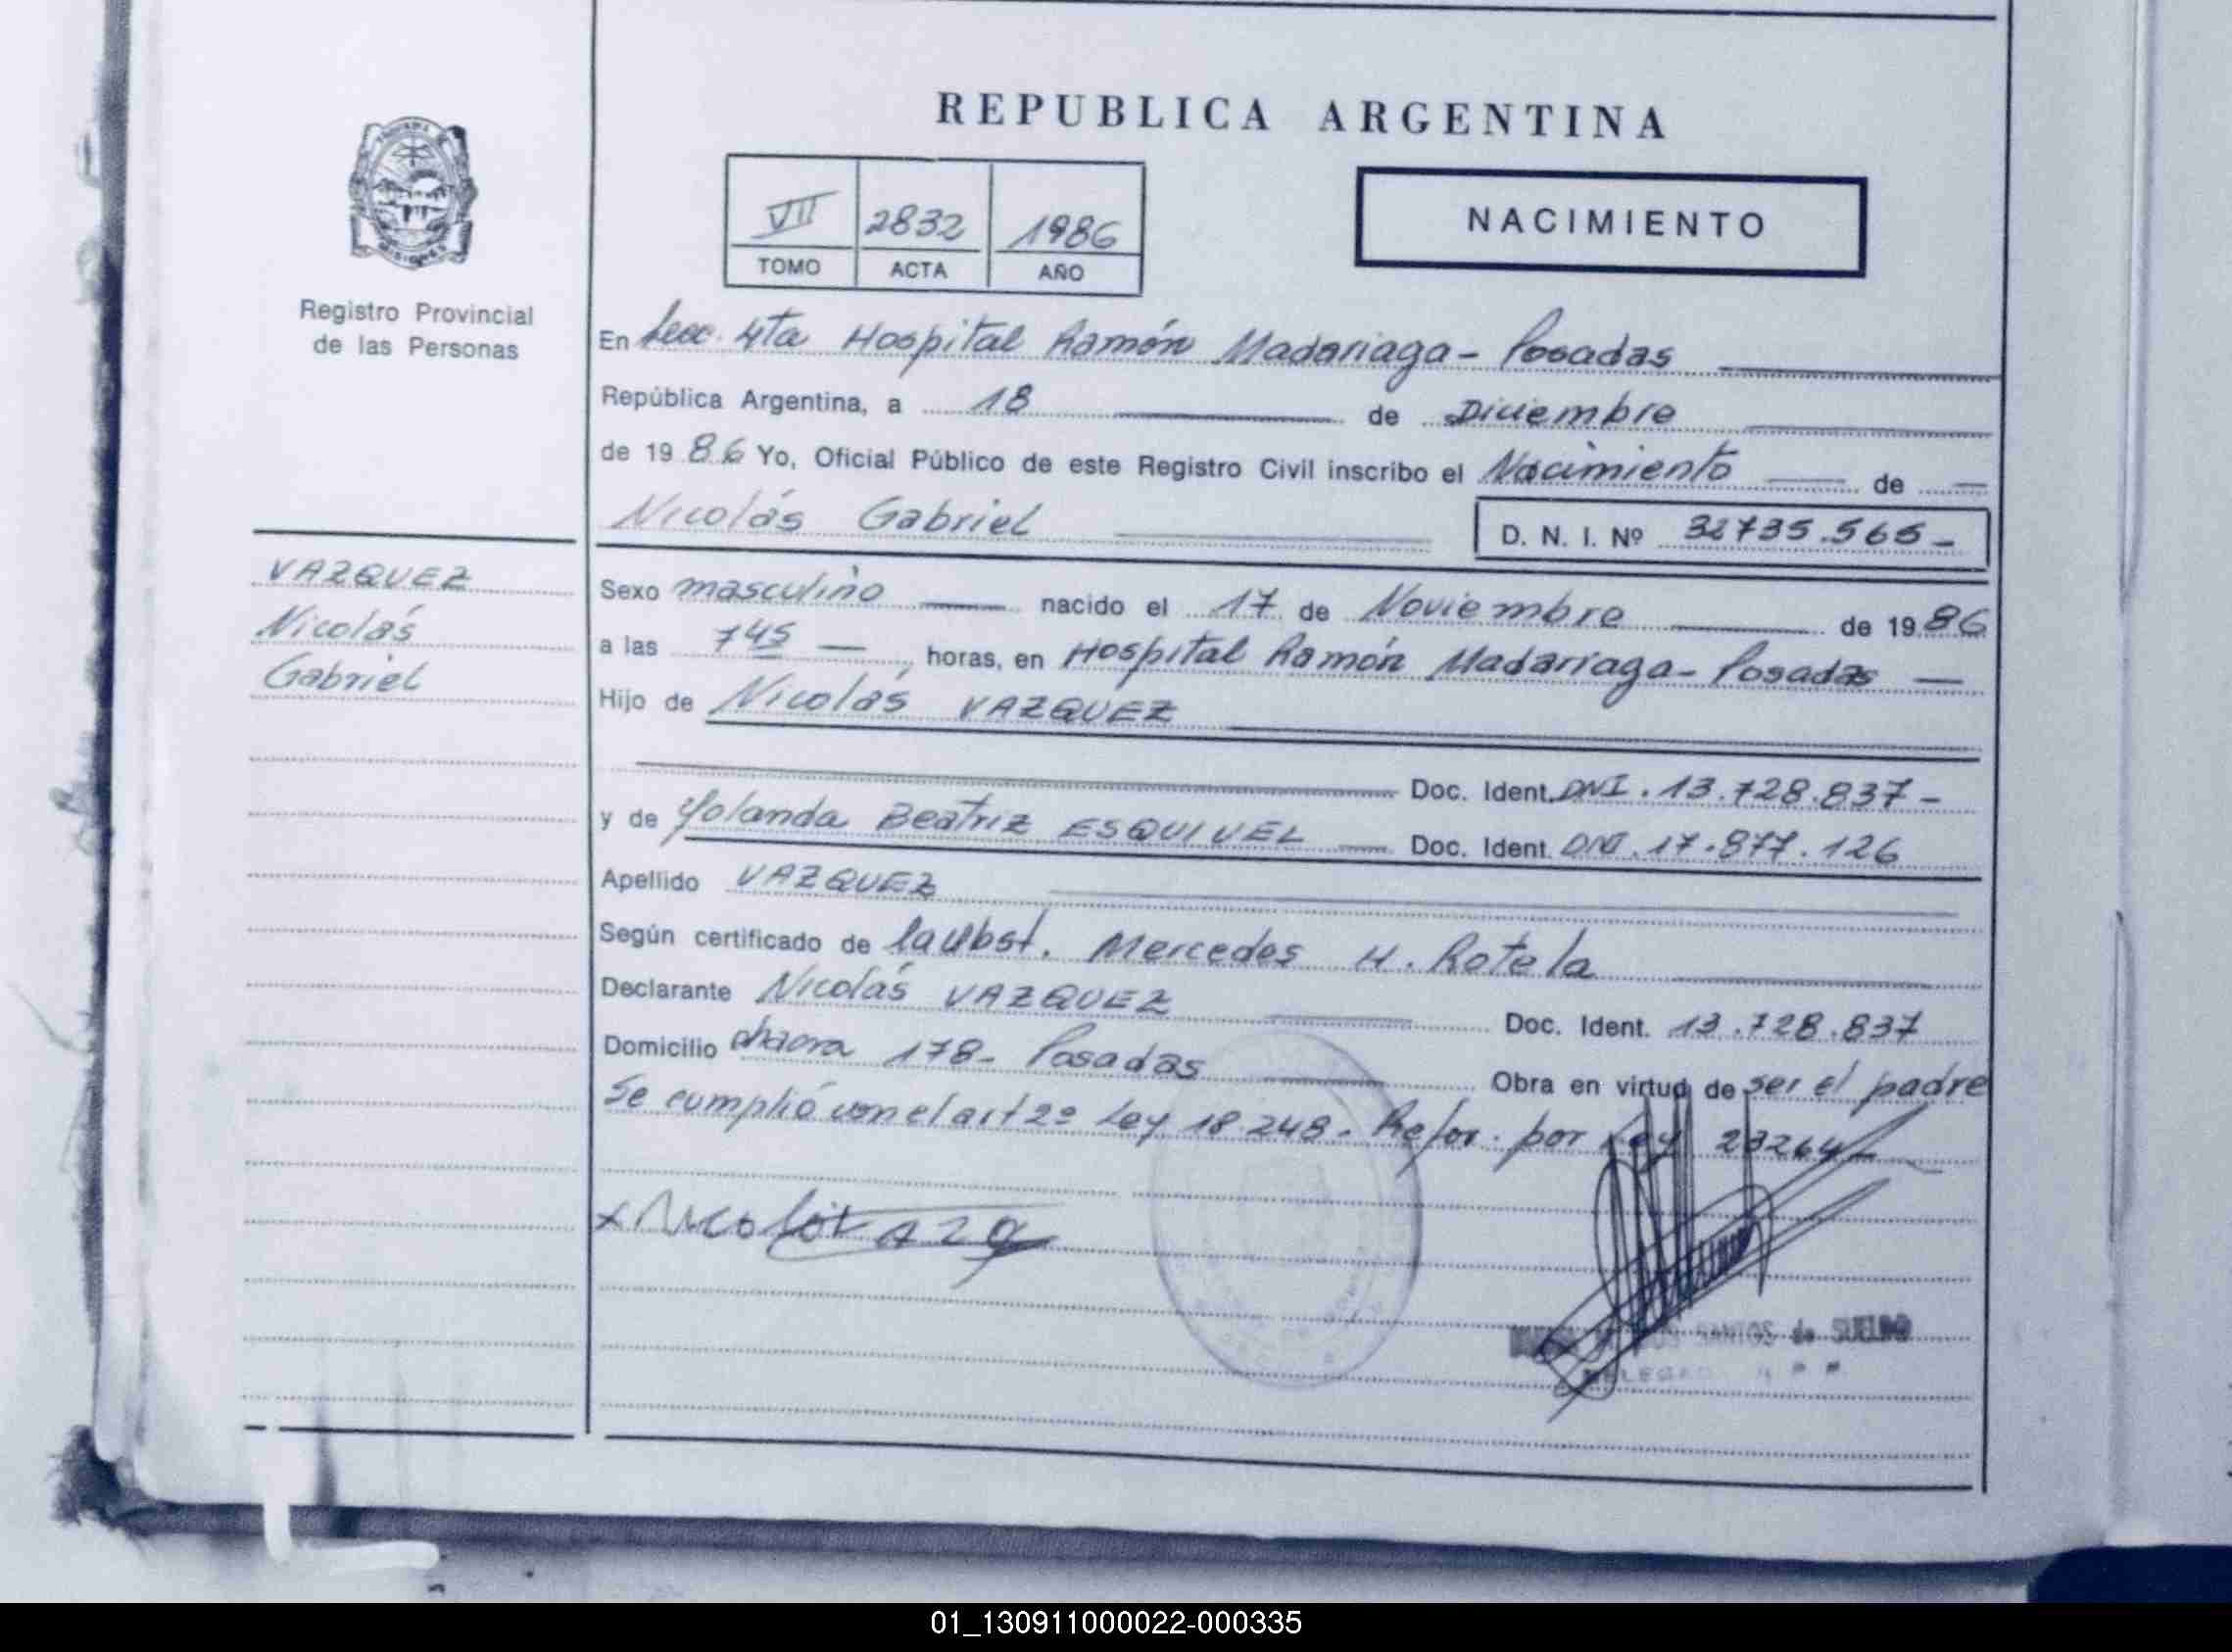 REPUBLICA ARGENTINA
VII 2832 1986
TOMO ACTA AÑO
NACIMIENTO
Registro Provincial
de las Personas
En Secc. 4ta Hospital Ramón Madariaga - Posadas
República Argentina, a 18 de Diciembre
de 1986 Yo, Oficial Público de este Registro Civil inscribo el Nacimiento de
Nicolás Gabriel D. N. I. Nº 32735.565-
VAZQUEZ
Nicolás
Gabriel
Sexo masculino nacido el 17 de Noviembre de 1986
a las 745 horas, en Hospital Ramón Madariaga - Posadas
Hijo de Nicolás VAZQUEZ
Doc. Ident. DNI. 13.728.837-
y de Yolanda Beatriz ESQUIVEL Doc. Ident. DNI. 17.877.126
Apellido VAZQUEZ
Según certificado de la Obst. Mercedes H. Rotela
Declarante Nicolás VAZQUEZ Doc. Ident. 13.728.837
Domicilio chacra 178 - Posadas Obra en virtud de ser el padre
Se cumplió con el art 2º Ley 18.248. Refor. por Ley 23264
SANTOS de SUELDO
01_130911000022-000335